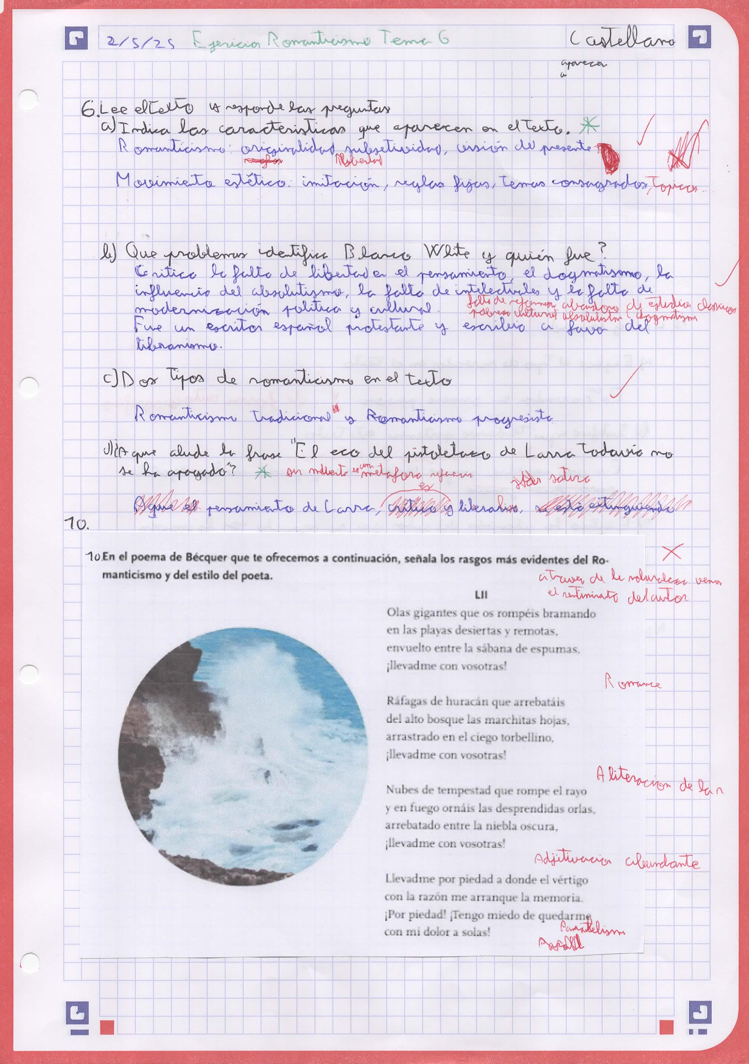 2/5/25 Ejercicios Romanticismo Tema 6 Castellano
aparecen
a
6. Lee el texto y responde las preguntas
a) Indica las caracteristicas que aparecen en el texto. *
Romanticismo: originalidad, subjetividad, version del presente
libertad
Movimiento estético: imitación, reglas fijas, temas consagrados, Topicos
b) Que problemas identifica Blanco White y quién fue?
Critica la falta de libertad en el pensamiento, el dogmatismo, la
influencia del absolutismo, la falta de intelectuales y la falta de
modernización politica y cultural. falta de reformas abandono de estudios clasicos
pobreza cultural absolutismo y dogmatismo
Fue un escritor español protestante y escribio a favor del
liberanismo.
c) Dos tipos de romanticismo en el texto
Romanticismo tradicional y Romanticismo progresista
d) A que alude la frase "El eco del pistoletazo de Larra todavía no
se ha apagado"? * metafora
satira
es
pensamiento de Larra, critico y liberalismo, se está extinguiendo
10.
10 En el poema de Bécquer que te ofrecemos a continuación, señala los rasgos más evidentes del Ro-
manticismo y del estilo del poeta.
atraves de la naturaleza vemos
el sentimiento del autor
LII
Olas gigantes que os rompéis bramando
en las playas desiertas y remotas,
envuelto entre la sábana de espumas,
¡llevadme con vosotras!
Romance
Ráfagas de huracán que arrebatáis
del alto bosque las marchitas hojas,
arrastrado en el ciego torbellino,
¡llevadme con vosotras!
Aliteracion de la r
Nubes de tempestad que rompe el rayo
y en fuego ornáis las desprendidas orlas,
arrebatado entre la niebla oscura,
¡llevadme con vosotras!
Adjetivacion abundante
Llevadme por piedad a donde el vértigo
con la razón me arranque la memoria.
¡Por piedad! ¡Tengo miedo de quedarme
con mi dolor a solas!
Paralelismo